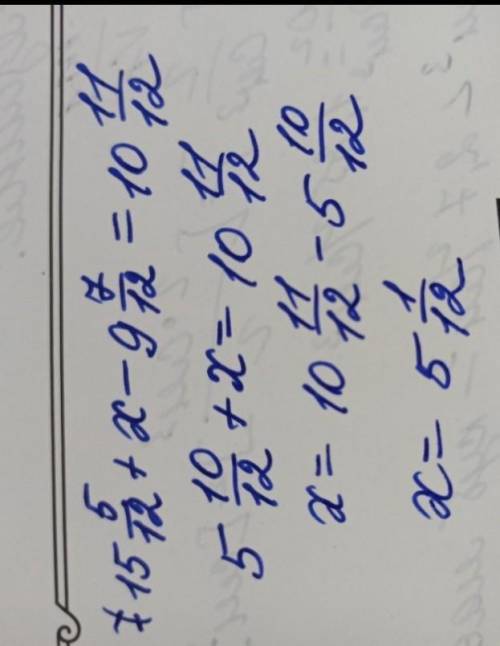 7 15 5/12 + x - 9 7/12 = 10 11/12
5 10/12 + x = 10 11/12
x = 10 11/12 - 5 10/12
x = 5 1/12